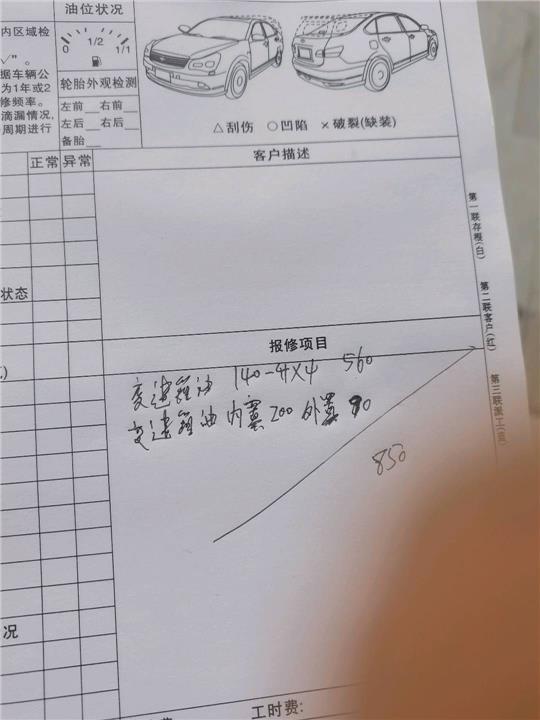 油位状况
内区域检
0 1/2 1/1
√"。
据车辆公
为1年或2
修频率。
滴漏情况,
周期进行
轮胎外观检测
左前 右前
左后 右后
备胎
△刮伤 ○凹陷 ×破裂(缺装)
正常 异常
客户描述
状态
报修项目
变速箱油 140-4×4 560
变速箱油内 200 外 90
850
况
工时费:
第一联存根(白)
第二联客户(红)
第三联派工